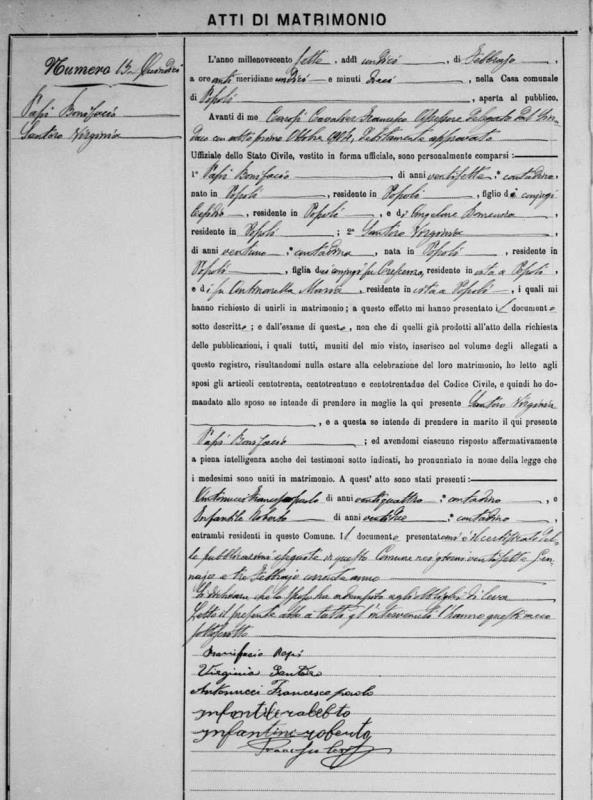 ATTI DI MATRIMONIO
Numero 15 Quindici
Papi Bonifacio
Santoro Virginia
L'anno millenovecento sette, addì undici, di Febbrajo,
a ore anti meridiane undici e minuti dieci, nella Casa comunale
di Popoli, aperta al pubblico.
Avanti di me Cavalier Francesco Assessore Delegato dal Sin-
daco con atto primo Ottobre debitamente approvato
Uffiziale dello Stato Civile, vestito in forma ufficiale, sono personalmente comparsi:
1° Papi Bonifacio, di anni ventisette, contadino,
nato in Popoli, residente in Popoli, figlio di coniugi
, residente in Popoli, e di Angelone Domenica
residente in Popoli; 2° Santoro Virginia
di anni ventuno, contadina, nata in Popoli, residente in
Popoli, figlia dei coniugi fu, residente in vita a Popoli,
e di fu Antonella Maria, residente in vita a Popoli, i quali mi
hanno richiesto di unirli in matrimonio; a questo effetto mi hanno presentato il documento
sotto descritto; e dall'esame di questo, non che di quelli già prodotti all'atto della richiesta
delle pubblicazioni, i quali tutti, muniti del mio visto, inserisco nel volume degli allegati a
questo registro, risultandomi nulla ostare alla celebrazione del loro matrimonio, ho letto agli
sposi gli articoli centotrenta, centotrentuno e centotrentadue del Codice Civile, e quindi ho do-
mandato allo sposo se intende di prendere in moglie la qui presente Santoro Virginia
, e a questa se intende di prendere in marito il qui presente
Papi Bonifacio; ed avendomi ciascuno risposto affermativamente
a piena intelligenza anche dei testimoni sotto indicati, ho pronunziato in nome della legge che
i medesimi sono uniti in matrimonio. A quest' atto sono stati presenti:
Antonucci Francescopaolo di anni ventiquattro, contadino, e
Infante Roberto di anni, contadino,
entrambi residenti in questo Comune. Il documento presentatomi è il certificato del-
le pubblicazioni eseguite in questo Comune nei giorni ventisette Gen-
najo e tre Febbrajo corrente anno
Si dichiara che lo sposo ha adempito agli obblighi di leva
Letto il presente atto a tutti gl'intervenuti l'hanno questi meco
sottoscritto
Bonifacio Papi
Virginia Santoro
Antonucci Francesco paolo
infantino roberto
Francesco